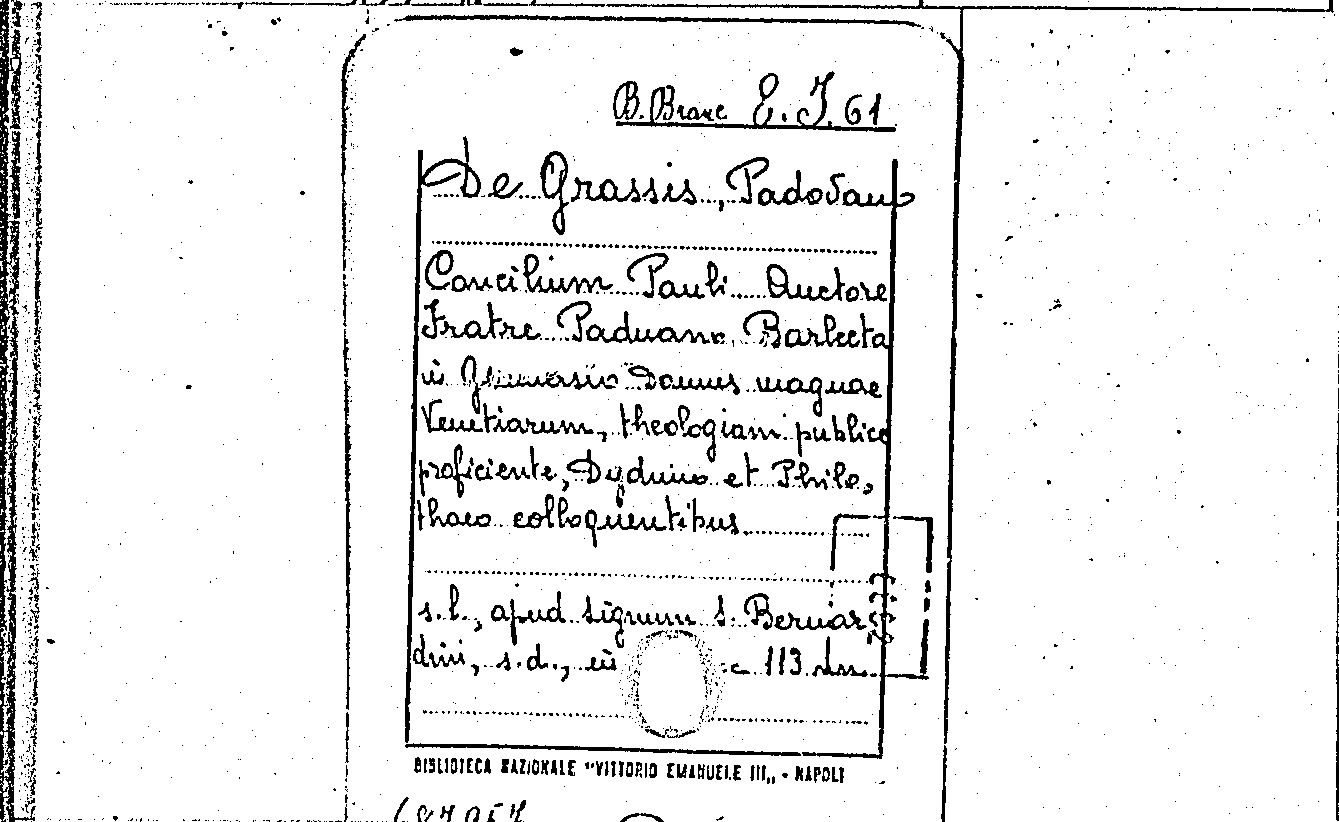 B. Branc E. J. 61
De Grassis, Padovano
Concilium Pauli Auctore
Fratre Paduano Barlecta
in Domus magnae
Venetiarum, theologiam publice
proficiente, Dydimo et Philo,
thaeo colloquentibus
s.l., apud signum S. Bernar
dini, s.d., in c 113
BIBLIOTECA NAZIONALE "VITTORIO EMANUELE III„ - NAPOLI